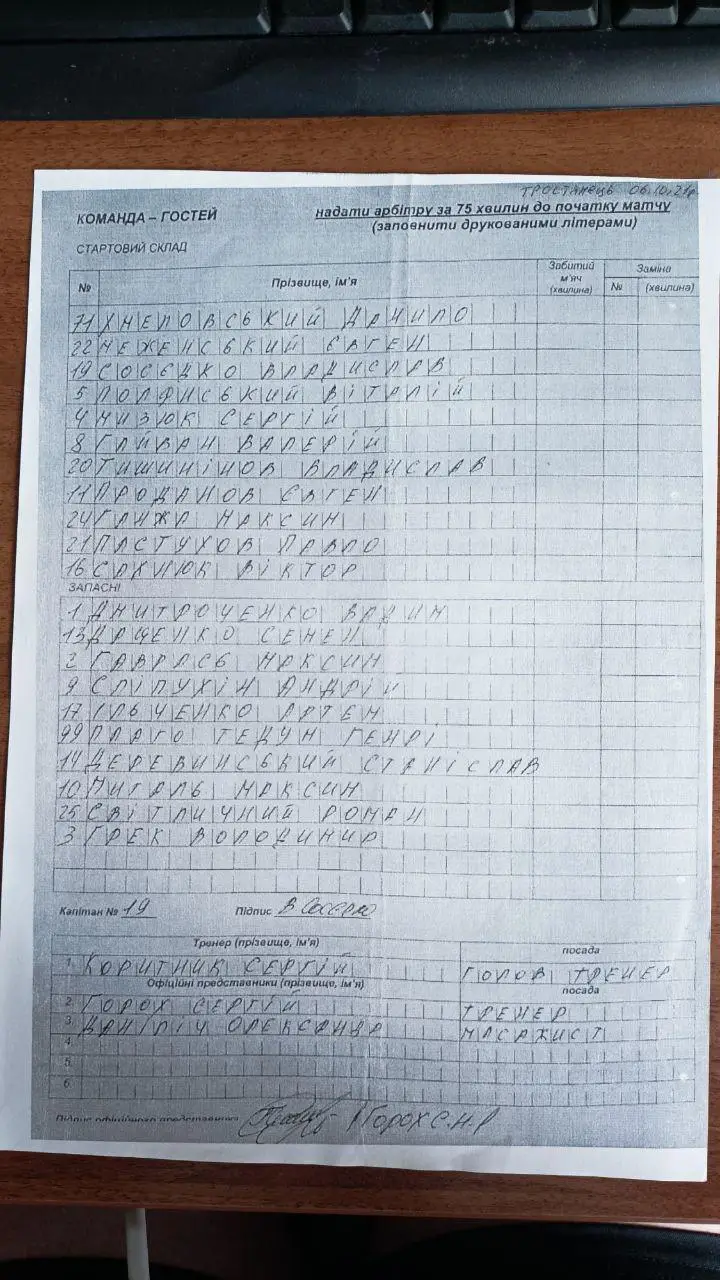 ТРОСТЯНЕЦЬ 06.10.21р
КОМАНДА – ГОСТЕЙ
надати арбітру за 75 хвилин до початку матчу
(заповнити друкованими літерами)
СТАРТОВИЙ СКЛАД
№ Прізвище, ім'я Забитий м'яч (хвилина) Заміна № (хвилина)
71 ХМЕЛОВСЬКИЙ ДАНИЛО
22 МЕЖЕНСЬКИЙ ЄВГЕН
19 СОСЄДКО ВЛАДИСЛАВ
5 ВІТАЛІЙ
4 МИЗЮК СЕРГІЙ
8 ГАЙВАН ВАЛЕРІЙ
20 ТИШИНІНОВ ВЛАДИСЛАВ
11 ПРОДАНОВ ЄВГЕН
24 ГАНЖА МАКСИМ
21 ПАСТУХОВ ПАВЛО
16 САХНЮК ВІКТОР
ЗАПАСНІ
1 ДМИТРОЧЕНКО ВАДИМ
13 ДАЦЕНКО СЕМЕН
2 ГАВРАСЬ МАКСИМ
9 СЛІПУХІН АНДРІЙ
17 ІЛЬЧЕННКО АРТЕМ
99 ПЛАГО ТЕДУМ ГЕНРІ
14 ДЕРЕВИНСЬКИЙ СТАНІСЛАВ
10 МИГАЛЬ МАКСИМ
25 СВІТЛИЧНИЙ РОМАН
3 ГРЕК ВОЛОДИМИР
Капітан № 19 Підпис В Сосєдко
Тренер (прізвище, ім'я) посада
1. КОРИТНИК СЕРГІЙ ГОЛОВ ТРЕНЕР
Офіційні представники (прізвище, ім'я) посада
2. ГОРОХ СЕРГІЙ ТРЕНЕР
3. ДАНІЛІЧ ОЛЕКСАНДР МАСАЖИСТ
4.
5.
6.
Підпис офіційного представника ГОРОХ С.М.